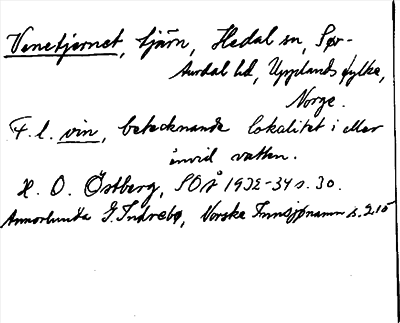 Venetjernet, tjärn, Hedal sn, Sør-
Aurdal hd, Upplands fylke,
Norge.
F. l. vin, betecknande lokalitet i eller
invid vatten.
H. O. Östberg, SOÅ 1932-34 s. 30.
Annorlunda G. Indrebø, Norske Innsjønamn s. 215